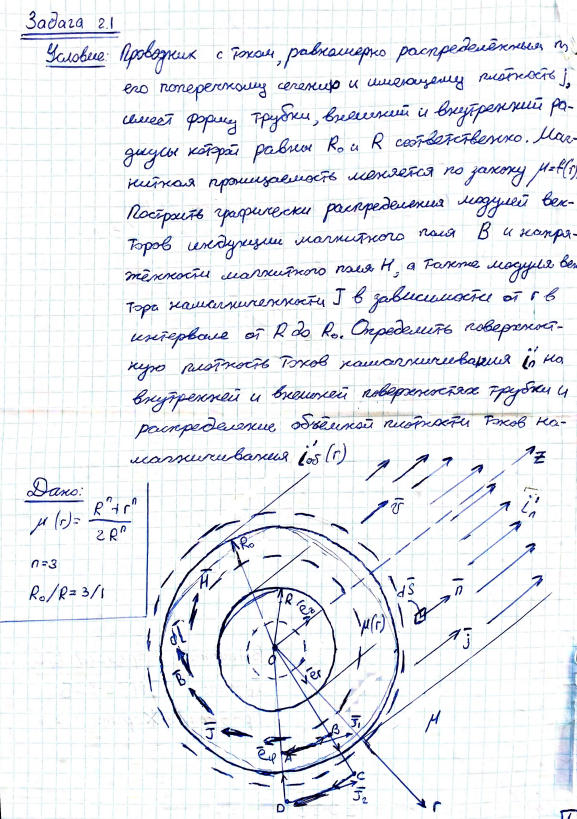 Задача 2.1
Условие: Проводник с током, равномерно распределённым п
его поперечному сечению и имеющему плотность j,
имеет форму трубки, внешний и внутренний ра-
диусы которой равны R₀ и R соответственно. Маг-
нитная проницаемость меняется по закону μ=f(r)
Построить графически распределения модулей век-
торов индукции магнитного поля B и напря-
жённости магнитного поля H, а также модуля век
тора намагниченности J в зависимости от r в
интервале от R до R₀. Определить поверхност-
ную плотность токов намагничивания i'ₙ на
внутренней и внешней поверхностях трубки и
распределение объёмной плотности токов на-
магничивания i'об(r)
Дано:
μ(r) = (Rⁿ+rⁿ)/(2Rⁿ)
n=3
R₀/R = 3/1
z
v
i'ₙ
R₀
H
dS
n
R
μ(r)
j
dL
O
er
B
J
eφ
A
B
J₁
μ
C
D
J₂
r